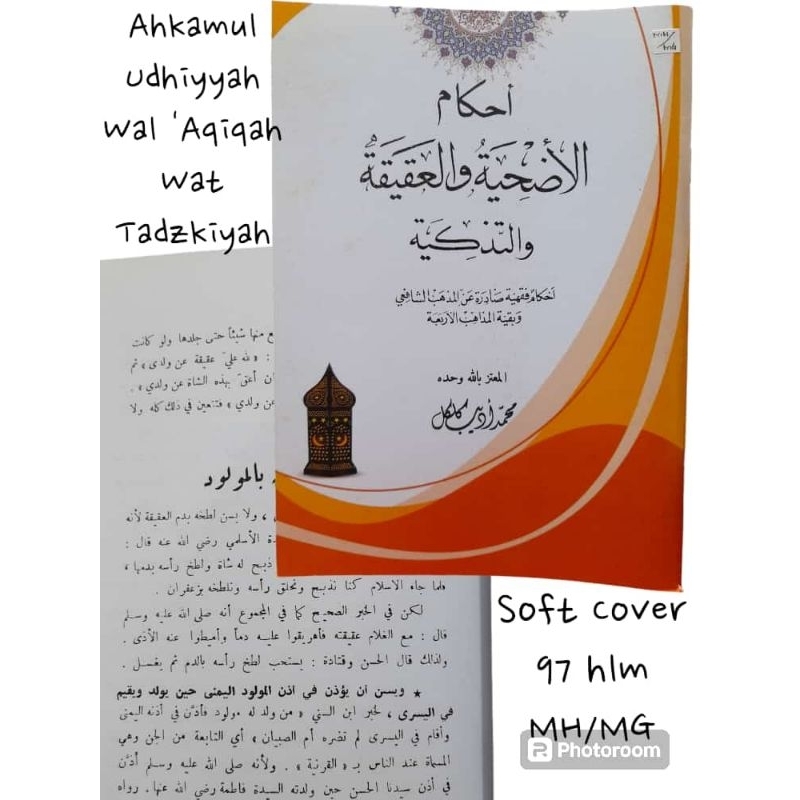 Ahkamul
udhiyyah
wal 'Aqiqah
wat
Tadzkiyah
أحكام
الأضحية والعقيقة
والتذكية
أحكام فقهية صادرة عن المذهب الشافعي
وبقية المذاهب الأربعة
المعتز بالله وحده
محمد أديب كلكل
منها شيئاً حتى جلدها ولو كانت
: « لله علي عقيقة عن ولدي » ثم
أعق بهذه الشاة عن ولدي » .
عن ولدي » فتتعين في ذلك كله ولا
بالمولود
، ولا يسن لطخه بدم العقيقة لأنه
الأسلمي رضي الله عنه قال :
ذبح له شاة ولطخ رأسه بدمها ،
فلما جاء الاسلام كنا نذبح ونحلق رأسه ونلطخه بزعفران .
لكن في الخبر الصحيح كما في المجموع أنه صلى الله عليه وسلم
قال : مع الغلام عقيقته فأهريقوا عليه دماً وأميطوا عنه الأذى .
ولذلك قال الحسن وقتادة : يستحب لطخ رأسه بالدم ثم يغسل .
★ ويسن أن يؤذن في أذن المولود اليمنى حين يولد ويقيم
في اليسرى ، لخبر ابن السني « من ولد له مولود فأذن في أذنه اليمنى
وأقام في اليسرى لم تضره أم الصبيان » أي التابعة من الجن وهي
المسماة عند الناس بـ « القرنية » . ولأنه صلى الله عليه وسلم أذن
في أذن سيدنا الحسن حين ولدته السيدة فاطمة رضي الله عنها . رواه
Soft cover
97 hlm
MH/MG
Photoroom